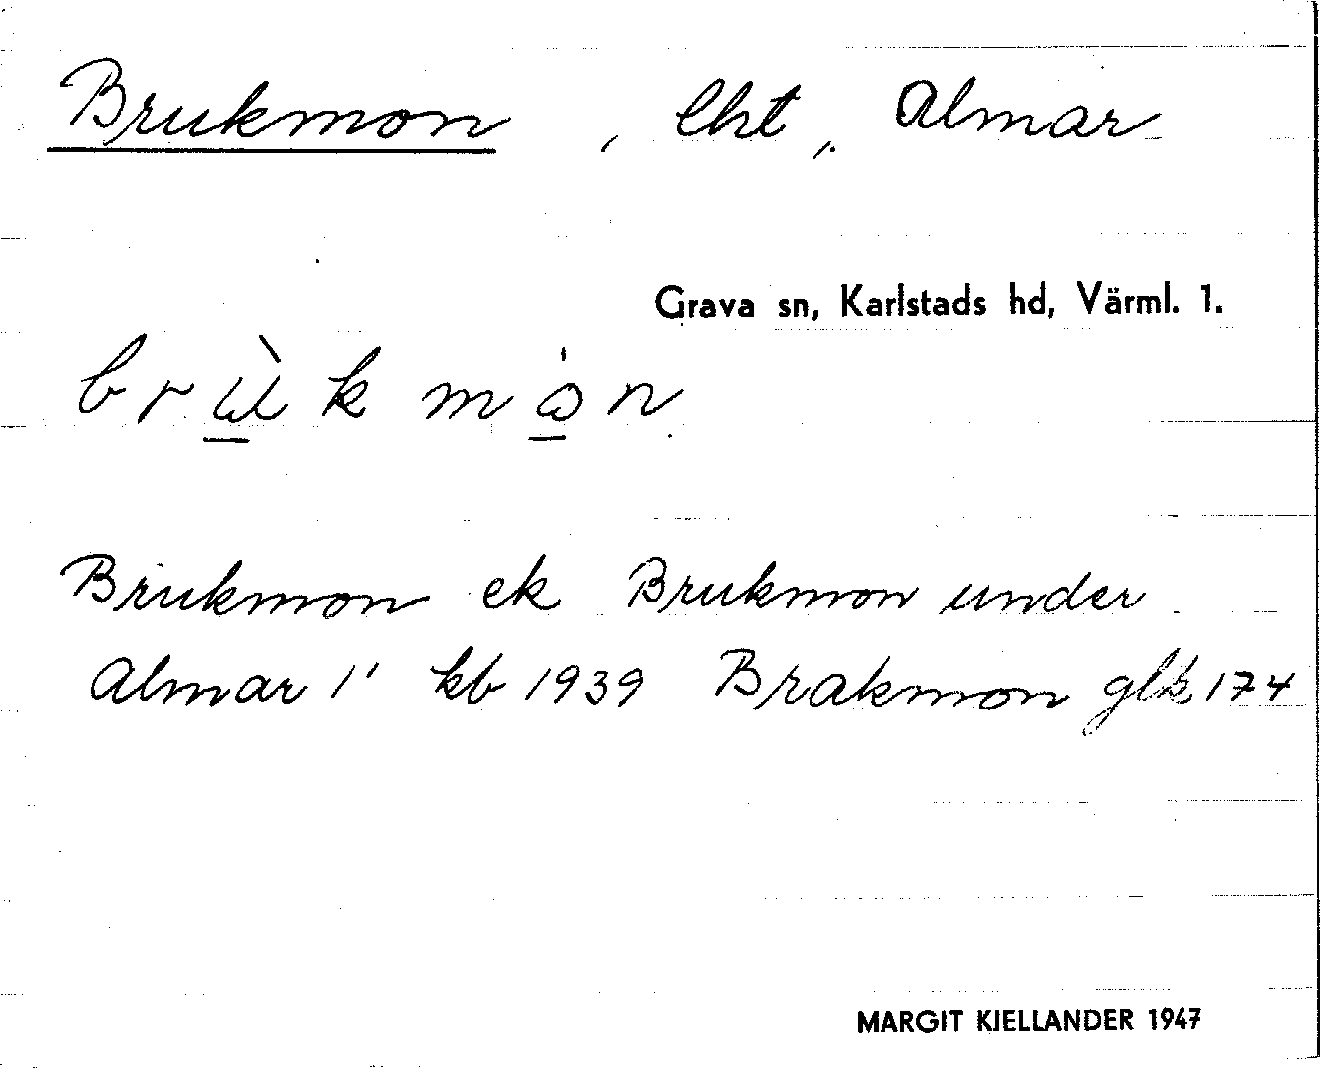 Brukmon, lht, Almar
Grava sn, Karlstads hd, Värml. 1.
Brukmon ek Brukmon under
Almar 1' kb 1939 Brakmon glk 174
MARGIT KJELLANDER 1947